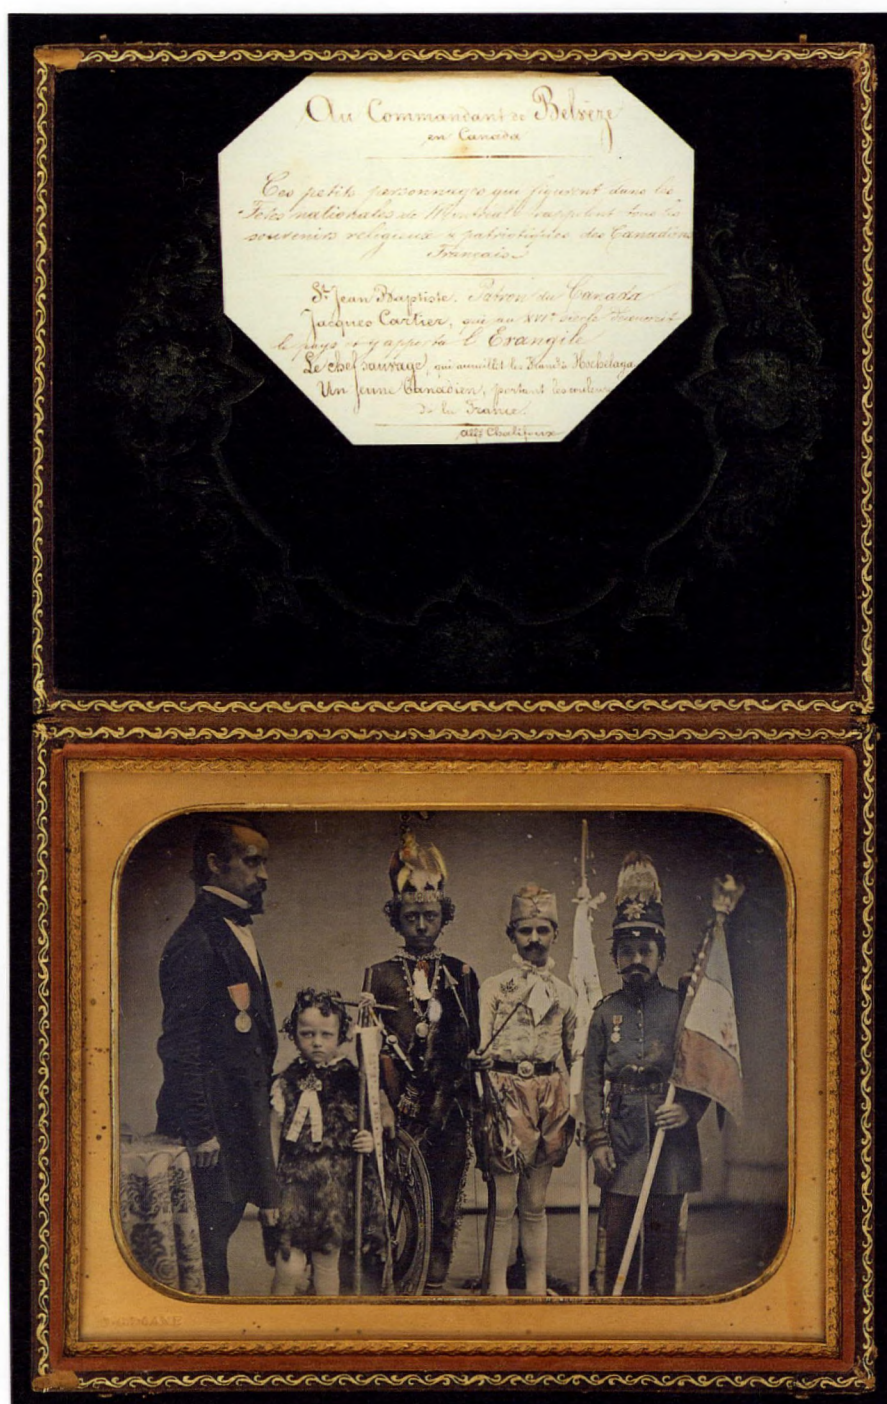 Au Commandant de Belvèze
en Canada
Ces petits personnages qui figurent dans les
Fêtes nationales de Montréal rappelent tous les
souvenirs religieux & patriotiques des Canadiens
Français
St Jean Baptiste, Patron du Canada
Jacques Cartier, qui au XVIe siècle découvrit
le pays et y apporta l'Evangile
Le chef sauvage, qui accueillit les à Hochelaga
Un jeune Canadien, portant les couleurs
de la France.
Chalifoux